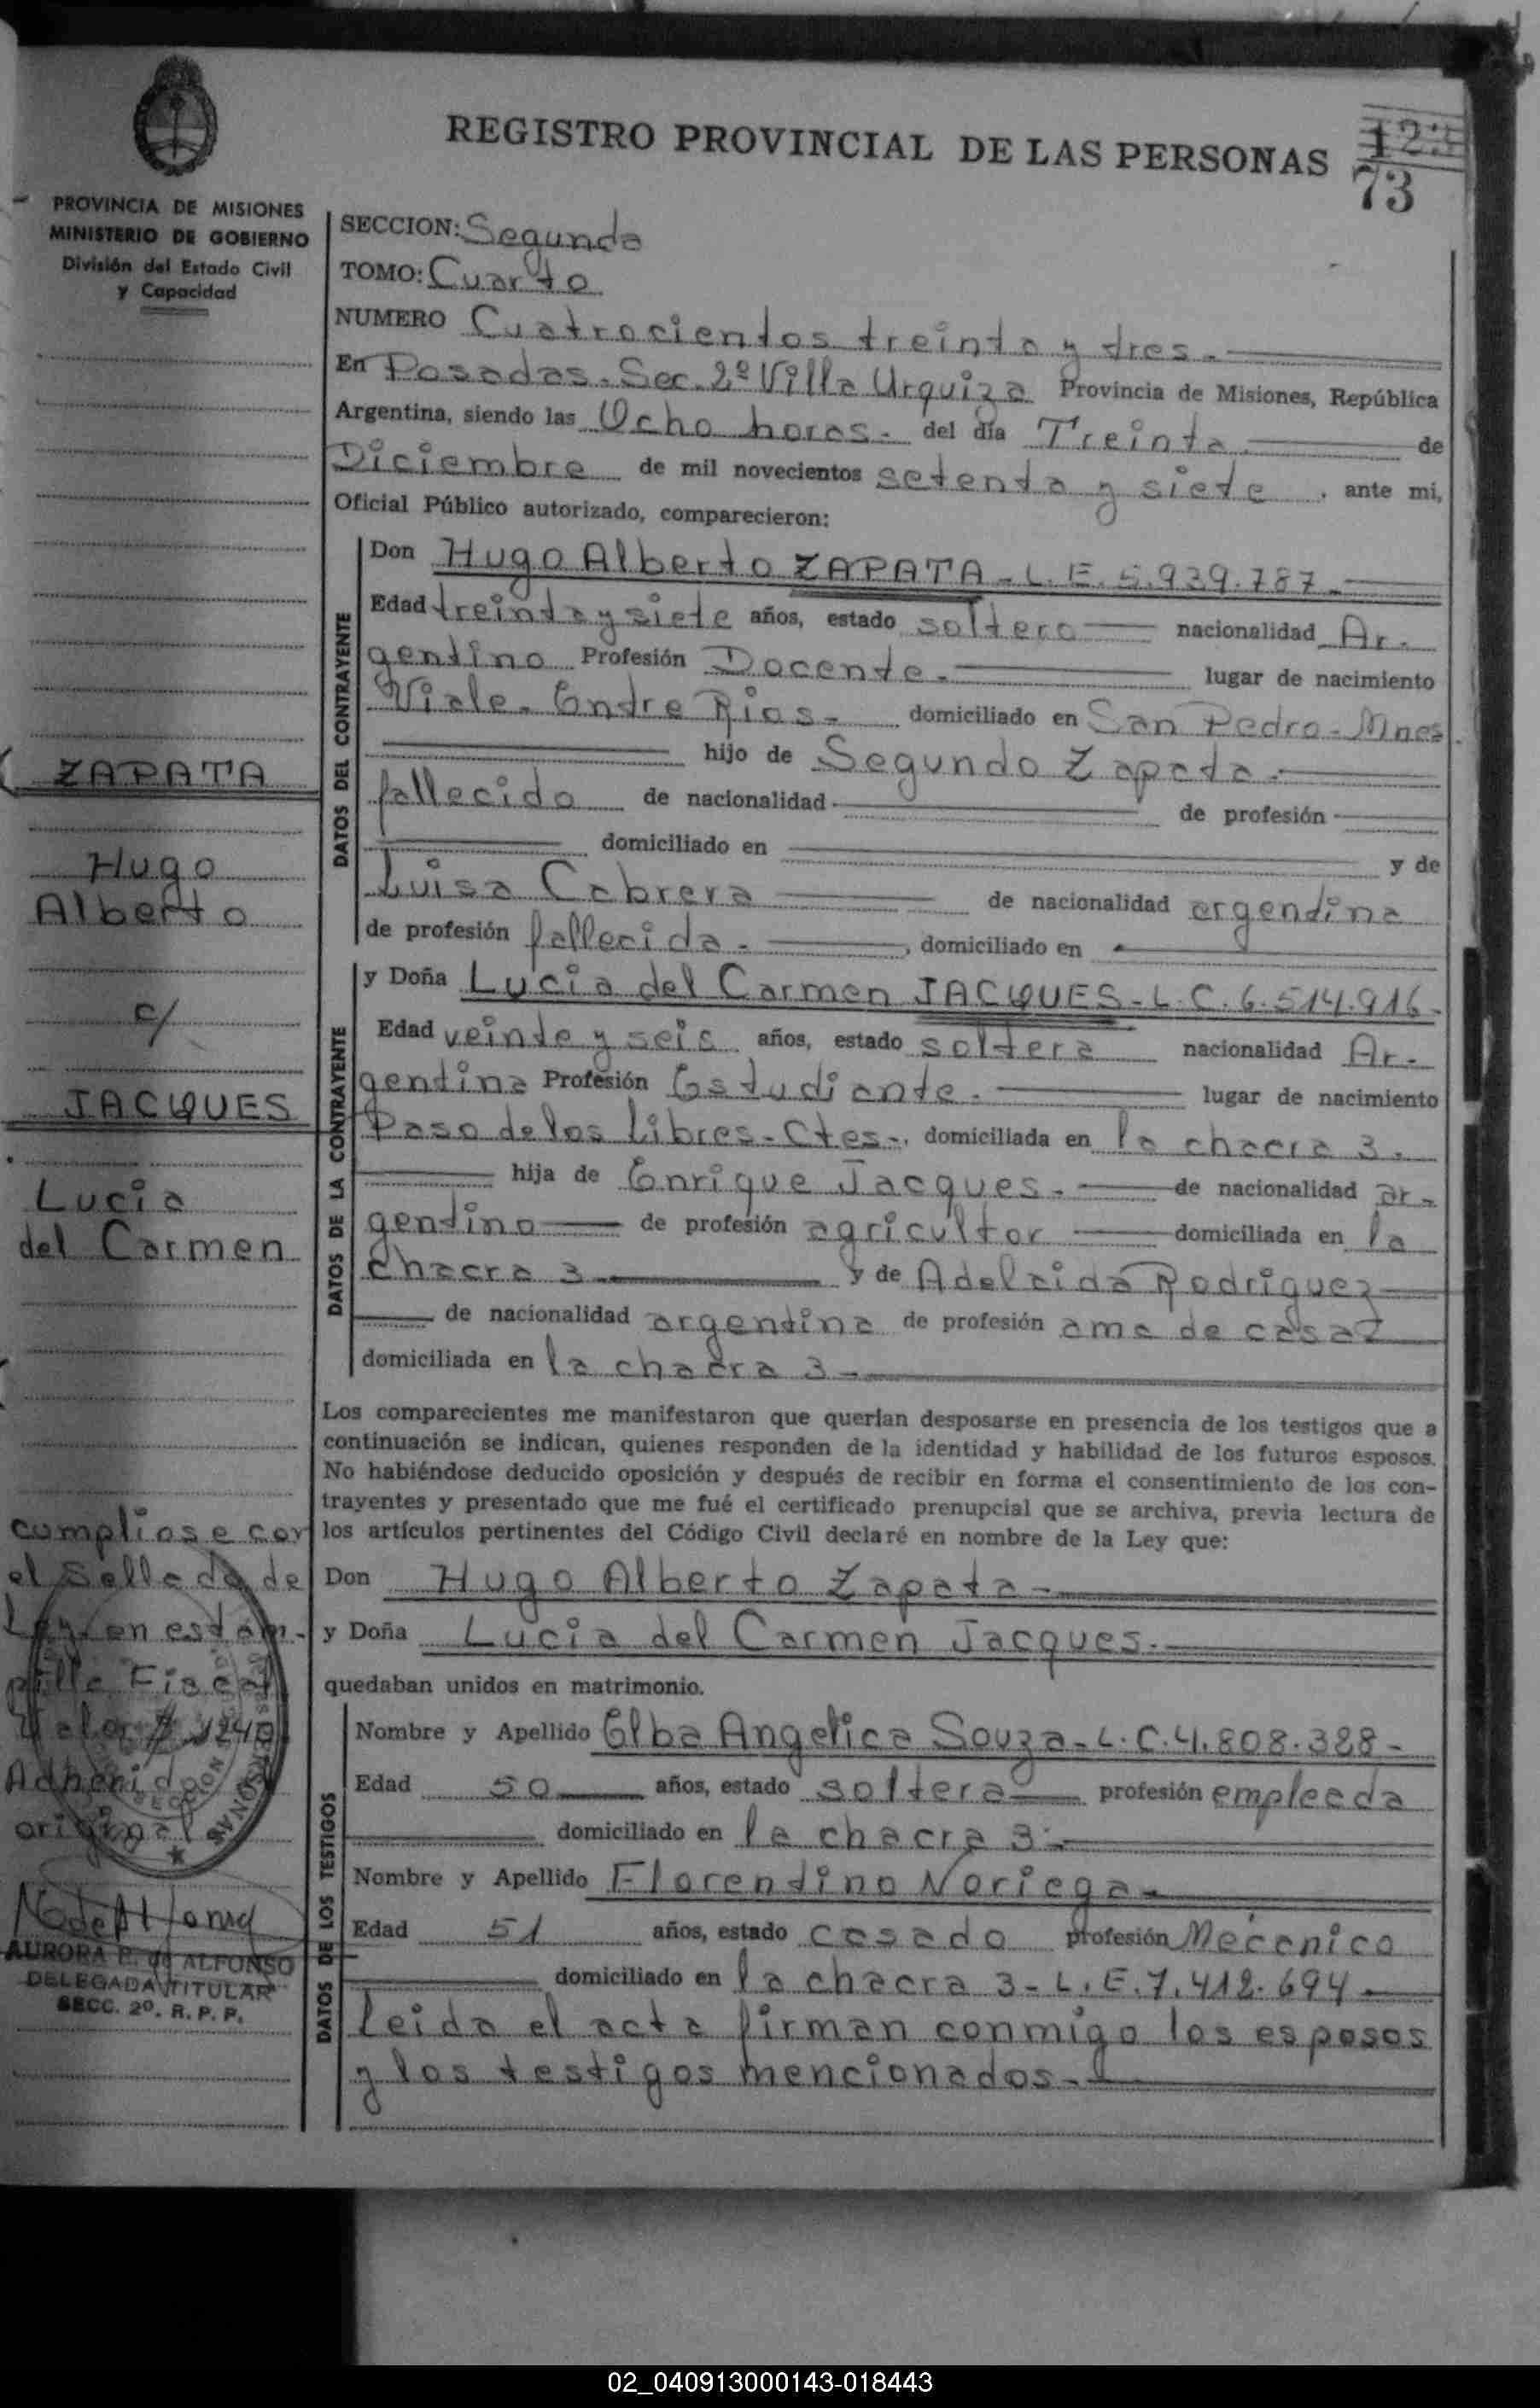 REGISTRO PROVINCIAL DE LAS PERSONAS
73
PROVINCIA DE MISIONES
MINISTERIO DE GOBIERNO
División del Estado Civil
y Capacidad
SECCION: Segunda
TOMO: Cuarto
NUMERO Cuatrocientos treinta y tres.-
En Posadas.Sec.2º Villa Urquiza Provincia de Misiones, República
Argentina, siendo las Ocho horas.- del día Treinta.- de
Diciembre de mil novecientos setenta y siete, ante mi,
Oficial Público autorizado, comparecieron:
DATOS DEL CONTRAYENTE
Don Hugo Alberto ZAPATA-L.E.5.939.787.-
Edad treinta y siete años, estado soltero nacionalidad Ar-
gentino Profesión Docente.- lugar de nacimiento
Viale. Entre Rios.- domiciliado en San Pedro-Mnes.
hijo de Segundo Zapata.-
fallecido de nacionalidad de profesión
domiciliado en y de
Luisa Cabrera de nacionalidad argentina
de profesión fallecida.-, domiciliado en
DATOS DE LA CONTRAYENTE
y Doña Lucia del Carmen JACQUES-L.C.6.514.916.
Edad veinte y seis años, estado soltera nacionalidad Ar-
gentina Profesión Estudiante.- lugar de nacimiento
Paso de los Libres-Ctes-, domiciliada en la chacra 3.
hija de Enrique Jacques.- de nacionalidad ar-
gentino de profesión agricultor domiciliada en la
chacra 3 y de Adelaida Rodriguez
de nacionalidad argentina de profesión ama de casa
domiciliada en la chacra 3-
Los comparecientes me manifestaron que querían desposarse en presencia de los testigos que a
continuación se indican, quienes responden de la identidad y habilidad de los futuros esposos.
No habiéndose deducido oposición y después de recibir en forma el consentimiento de los con-
trayentes y presentado que me fué el certificado prenupcial que se archiva, previa lectura de
los artículos pertinentes del Código Civil declaré en nombre de la Ley que:
Don Hugo Alberto Zapata-
y Doña Lucia del Carmen Jacques.-
quedaban unidos en matrimonio.
DATOS DE LOS TESTIGOS
Nombre y Apellido Elba Angelica Souza-L.C.4.808.388-
Edad 50 años, estado soltera profesión empleada
domiciliado en la chacra 3-
Nombre y Apellido Florentino Noriega-
Edad 51 años, estado casado profesión Mecanico
domiciliado en la chacra 3-L.E.7.412.694.
Leida el acta firman conmigo los esposos
y los testigos mencionados.-
ZAPATA
Hugo
Alberto
c/
JACQUES
Lucia
del Carmen
cumpliose con
el Sellado de
Ley en estam-
pilla Fiscal
Valor $ 1240
Adherida
original
AURORA P. de ALFONSO
DELEGADA TITULAR
SECC. 2º. R. P. P.
02_040913000143-018443